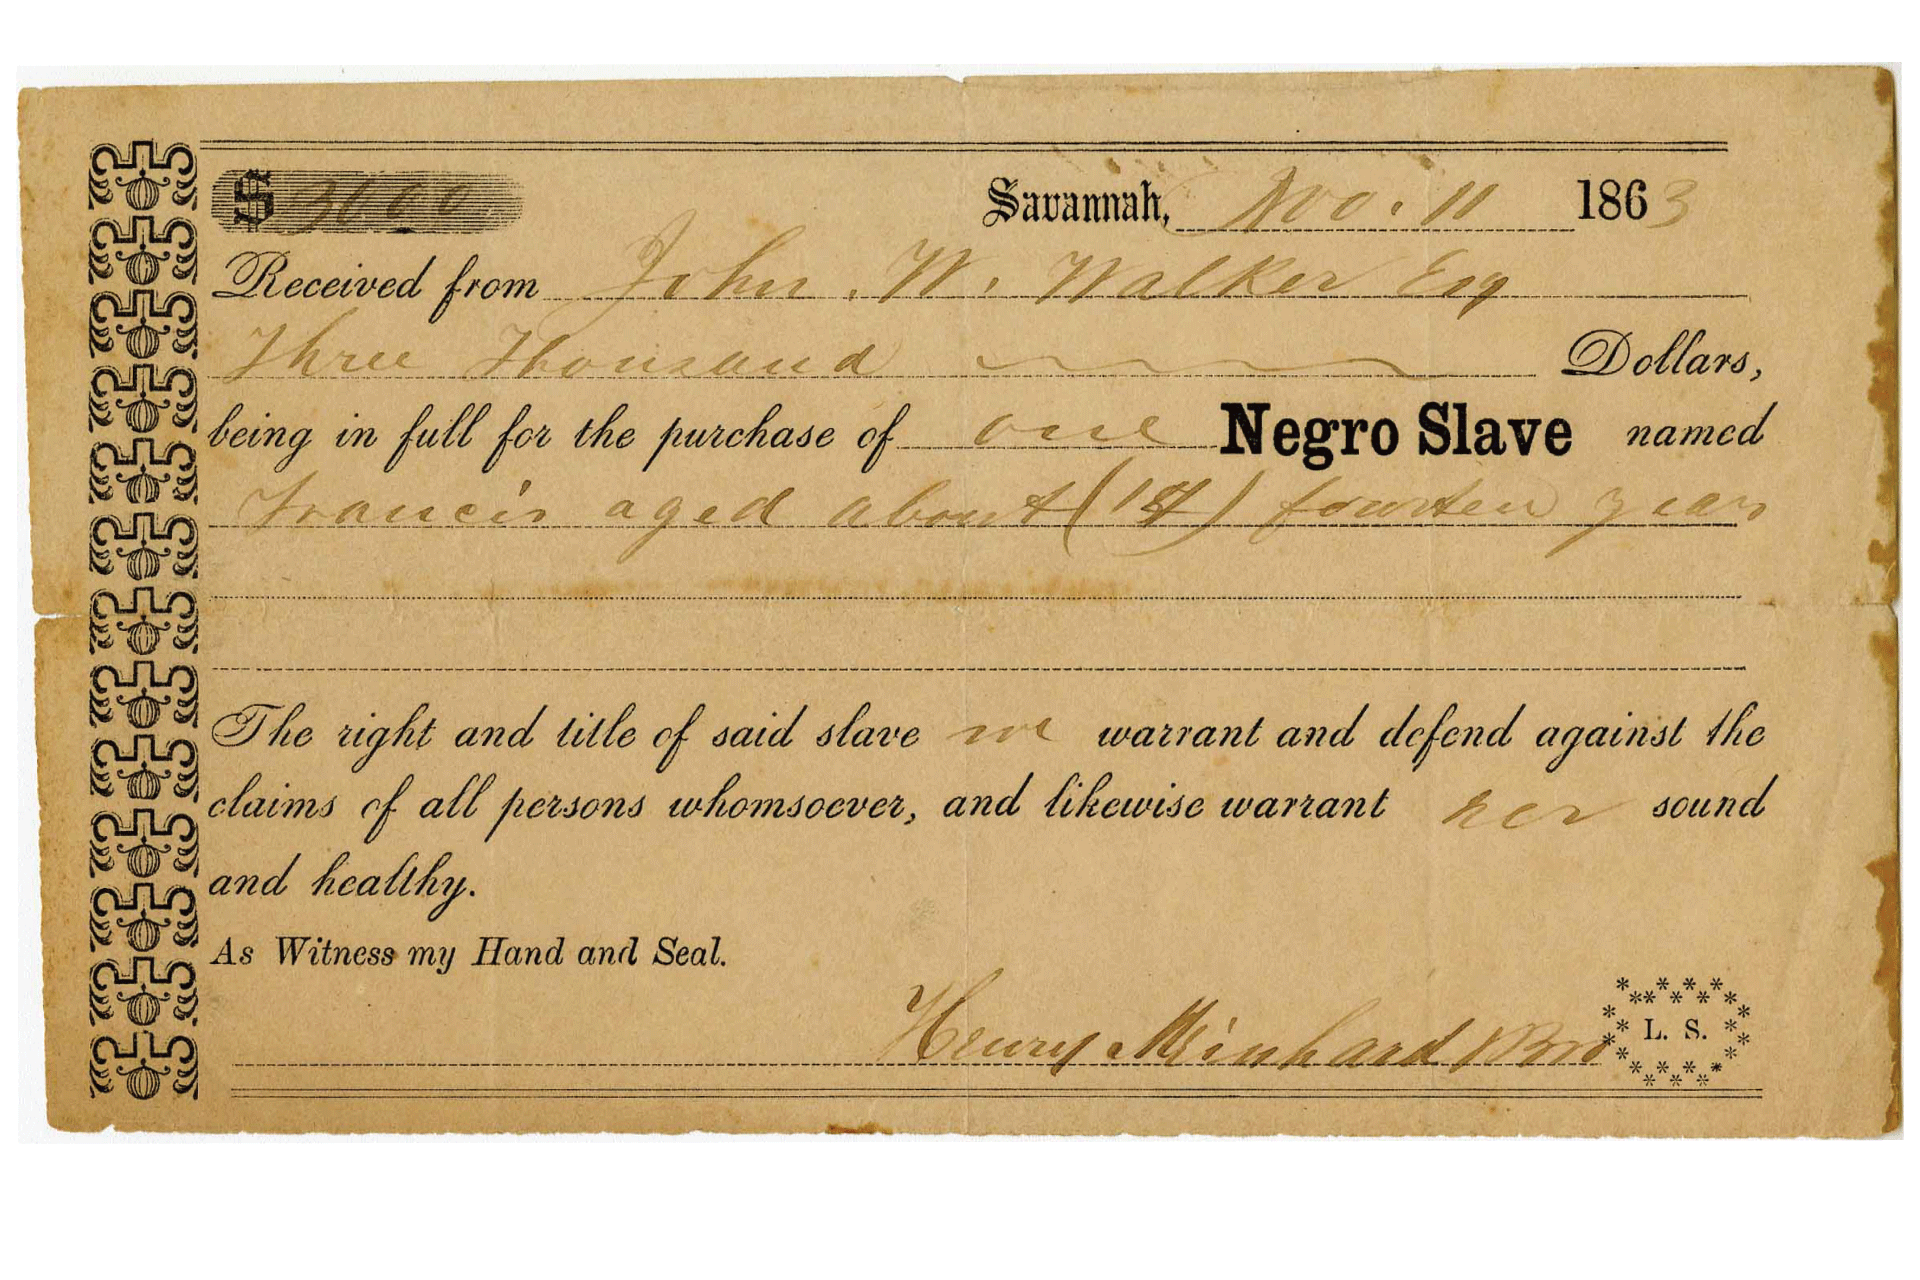 $ 3000 Savannah, Nov. 11 1863
Received from John. W. Walker Esq
Three Thousand Dollars,
being in full for the purchase of one Negro Slave named
Francis aged about (14) fourteen years
The right and title of said slave we warrant and defend against the
claims of all persons whomsoever, and likewise warrant her sound
and healthy.
As Witness my Hand and Seal.
Henry Meinhard & Bro
L. S.